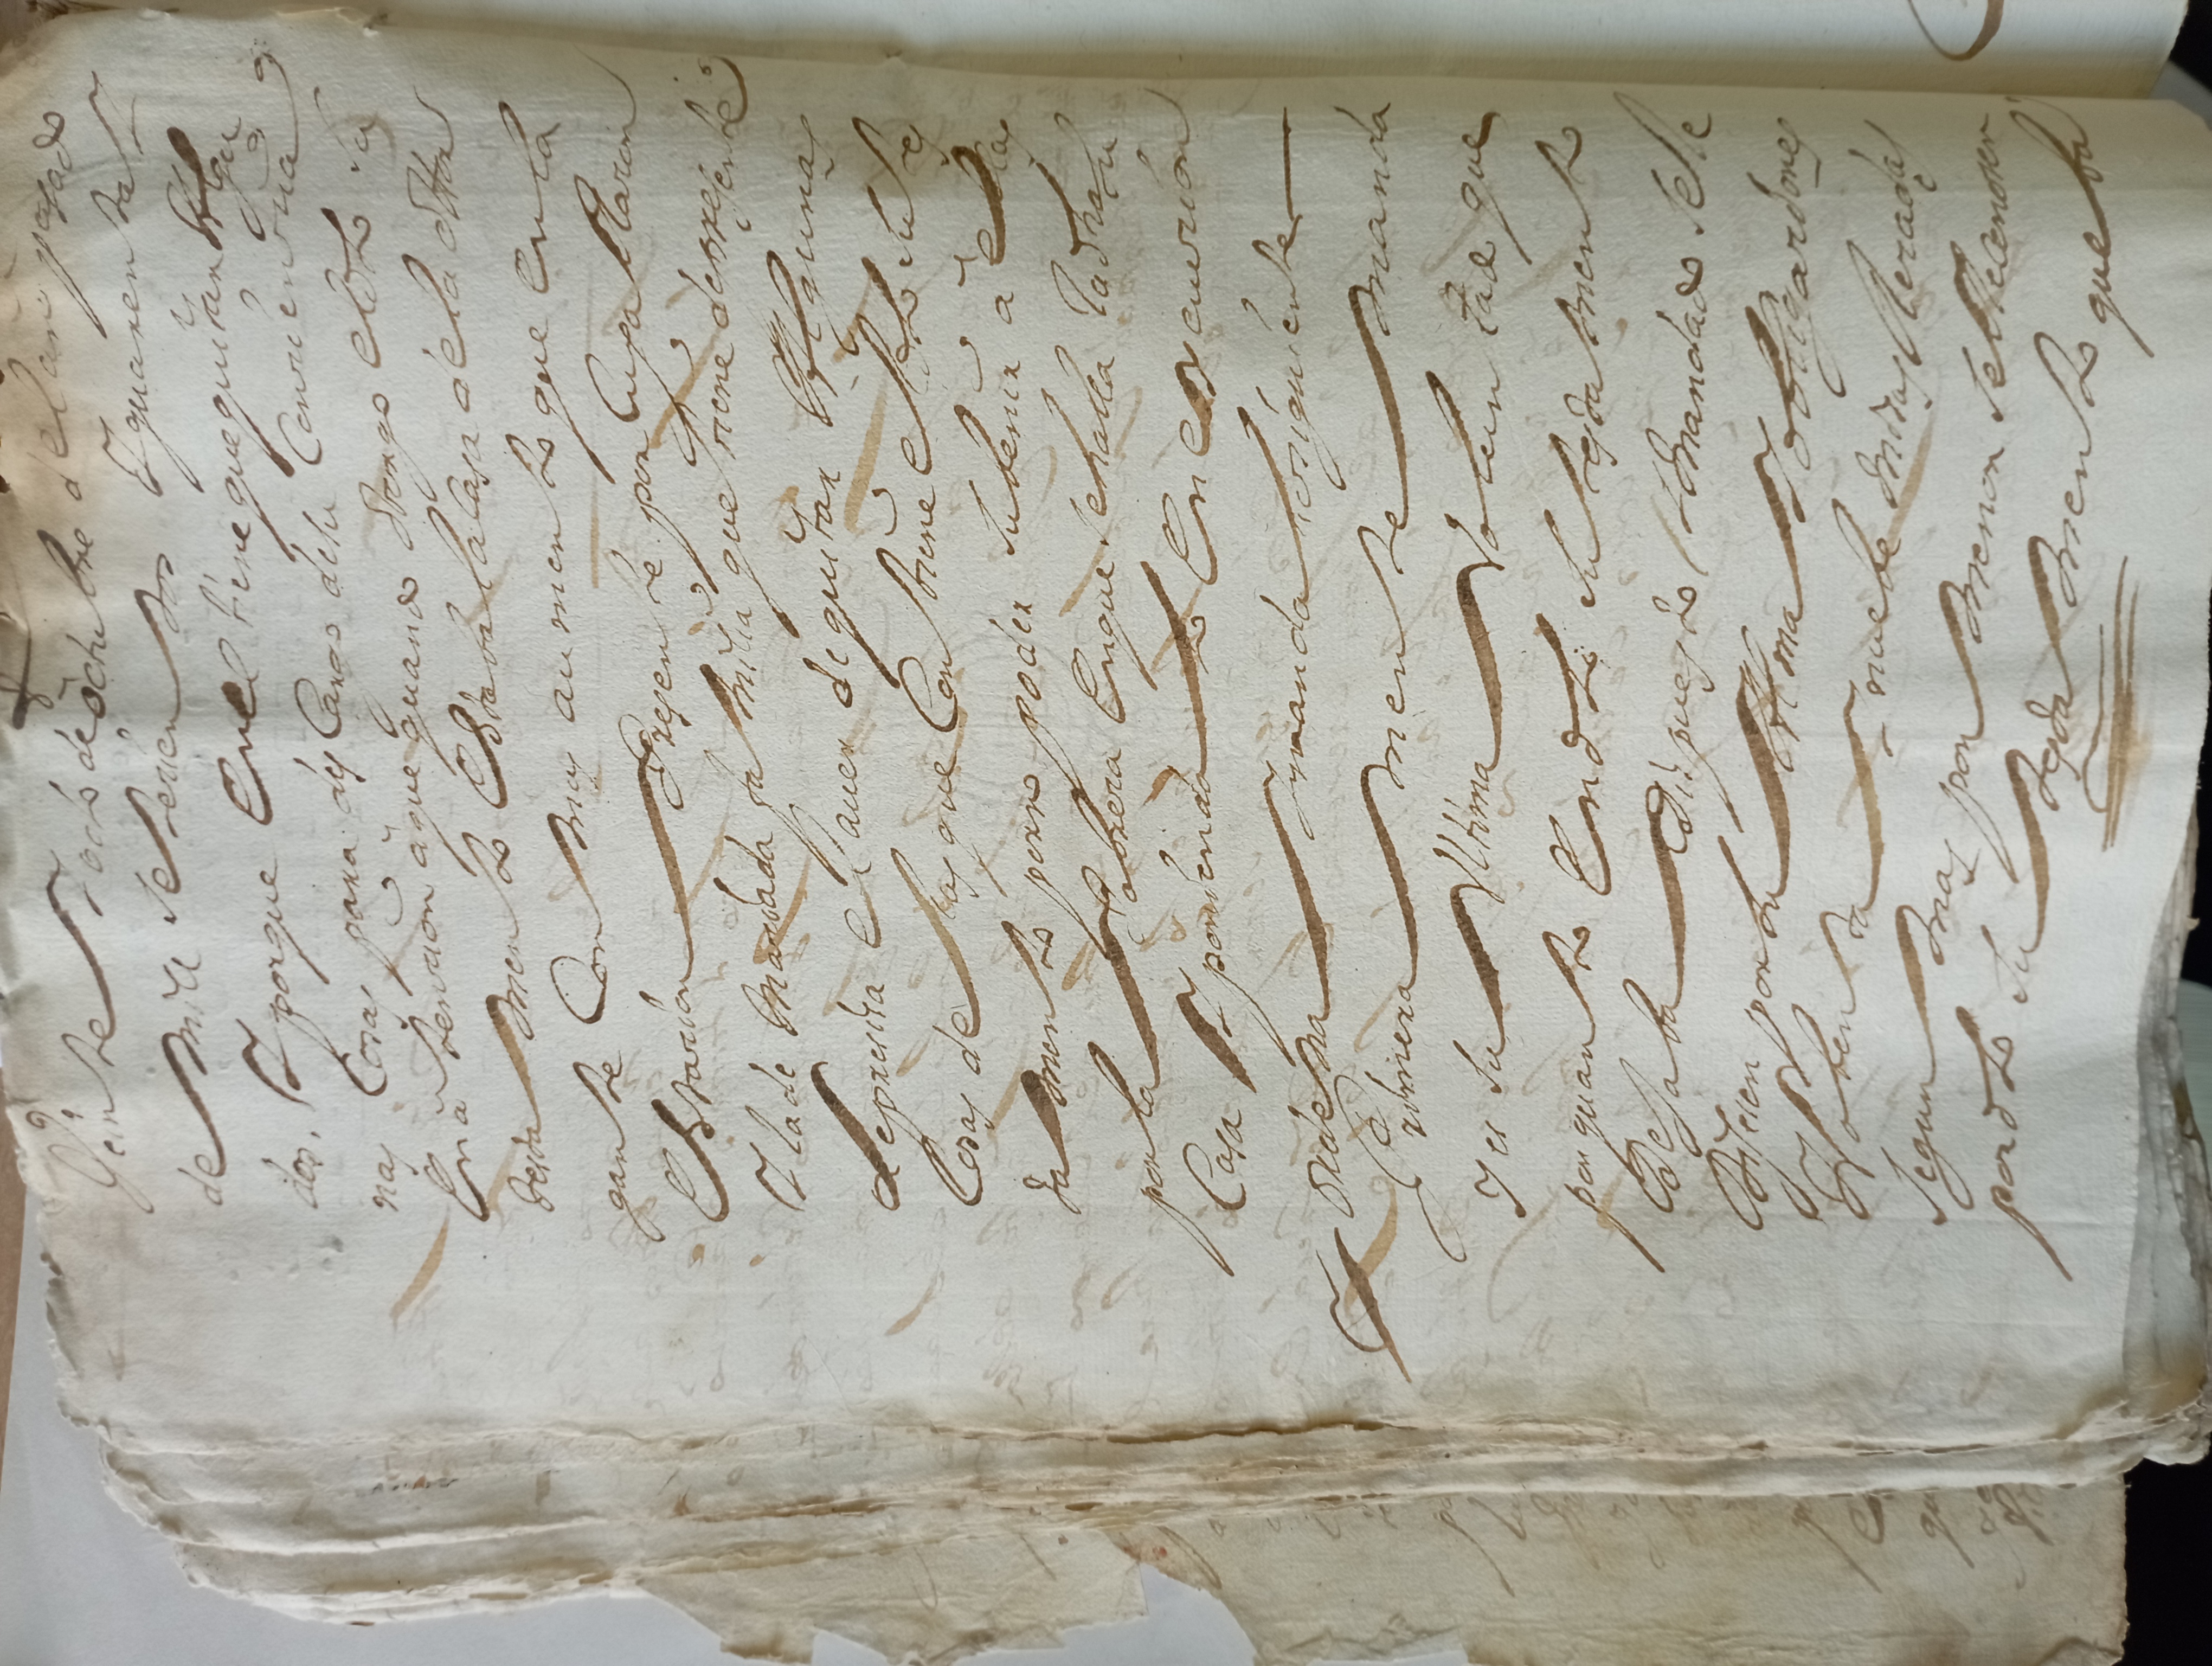 Veinte Y ocho de octubre del año pasado
de mill setecientos Y quarenta Y
dos, Y porque en el tiene que quitar Algu
nas Cosas para descargo de su Conciencia
En atencion a que quando otorgo el dho su
testamento Estaba la Casa de la otor
gante Con mas aumento que en la
Estacion Presente por Cuya Racon
Y la demaciada familia que tiene de presente
le precisa el aver de quitar Algunas
Cosas de las que Contiene el dho su tes
tamento por no poder subenir a ellas
por la Pobreca En que se halla la dha su
Casa Y poniendolo En execucion
ordena Y manda lo siguiente
Primeramente manda
Y es su Ultima Voluntad que
por quanto En dho su testamento
Dejaba Dispuesto Y mandado se le
Dijesen por su Alma Y obligaciones
Nobenta Y nuebe misas Recadas
segun mas por menor se Reconocen
por dho su testamento que ba